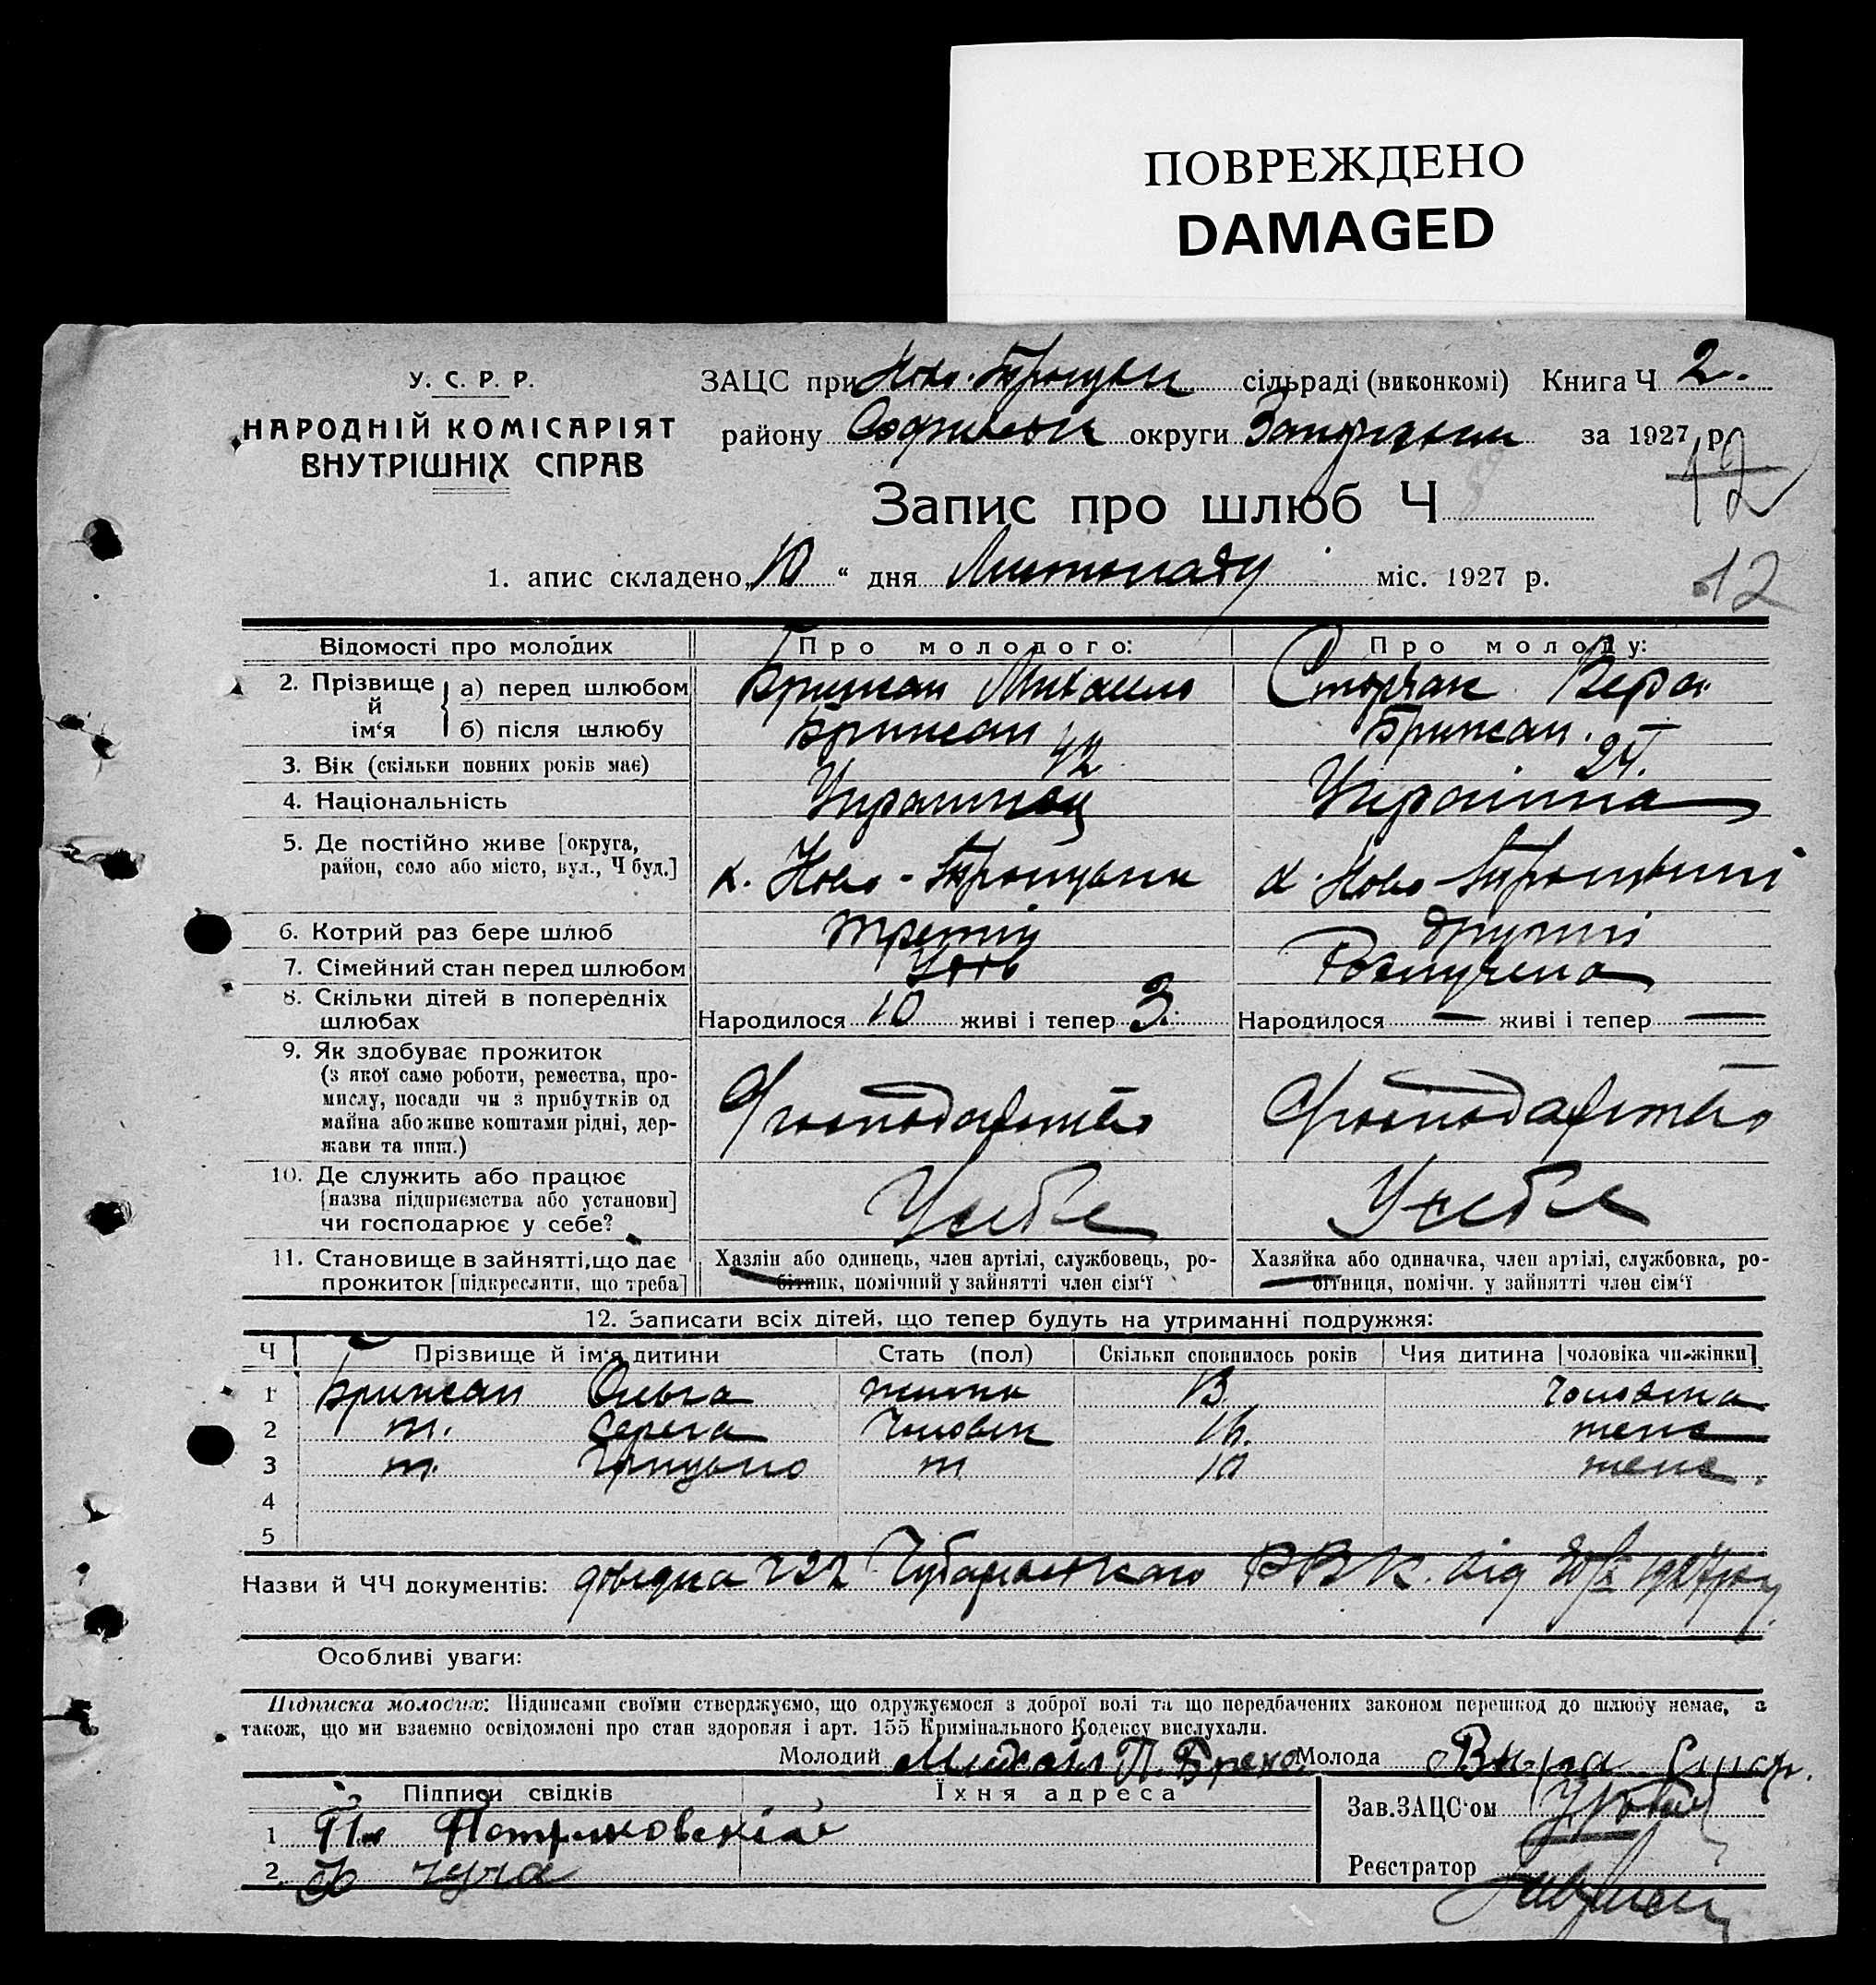 ПОВРЕЖДЕНО
DAMAGED
У. С. Р. Р.
НАРОДНІЙ КОМІСАРІЯТ
ВНУТРІШНІХ СПРАВ
ЗАЦС при Ново-Троицьк сільраді (виконкомі) Книга Ч 2.
району округи за 1927 р.
12
Запис про шлюб Ч
1. апис складено „10" дня Листопаду міс. 1927 р.
12
Відомості про молодих Про молодого: Про молоду:
2. Прізвище й ім'я а) перед шлюбом Брижан Михаило Сторчак Вера
б) після шлюбу Брижан Брижан.
3. Вік (скільки повних років має) 42 24.
4. Національність Украинец Украінка
5. Де постійно живе [округа,
район, село або місто, вул., Ч буд.] х. Ново-Троицьки х. Ново-Троицькіі
6. Котрий раз бере шлюб третій другий
7. Сімейний стан перед шлюбом Розлучена
8. Скільки дітей в попередніх
шлюбах Народилося 10 живі і тепер 3. Народилося — живі і тепер —
9. Як здобуває прожиток
(з якої саме роботи, ремества, про-
мислу, посади чи з прибутків од
майна або живе коштами рідні, дер-
жави та инш.) Господарство Господарство
10. Де служить або працює
[назва підприємства або установи]
чи господарює у себе? У себе У себе
11. Становище в зайнятті, що дає
прожиток [підкреслити, що треба]
Хазяїн або одинець, член артілі, службовець, ро-
бітник, помічний у зайнятті член сім'ї
Хазяйка або одиначка, член артілі, службовка, ро-
бітниця, помічн. у зайнятті член сім'ї
12. Записати всіх дітей, що тепер будуть на утриманні подружжя:
Ч Прізвище й ім'я дитини Стать (пол) Скільки сповнилось років Чия дитина [чоловіка чи жінки]
1 Брижан Ольга жинка 13. чоловіка
2 т. Серега Чоловік 16. теже
3 т. Грицько т 10 теже
4
5
Назви й ЧЧ документів: довідка Ч 22 РВК. від 1927 року
Особливі уваги:
Підписка молодих: Підписами своїми стверджуємо, що одружуємося з доброї волі та що передбачених законом перешкод до шлюбу немає, а
також, що ми взаємно освідомлені про стан здоровля і арт. 155 Кримінального Кодексу вислухали.
Молодий Михаил П. Молода Вира
Підписи свідків Їхня адреса
1
2.
Зав. ЗАЦС'ом
Реєстратор